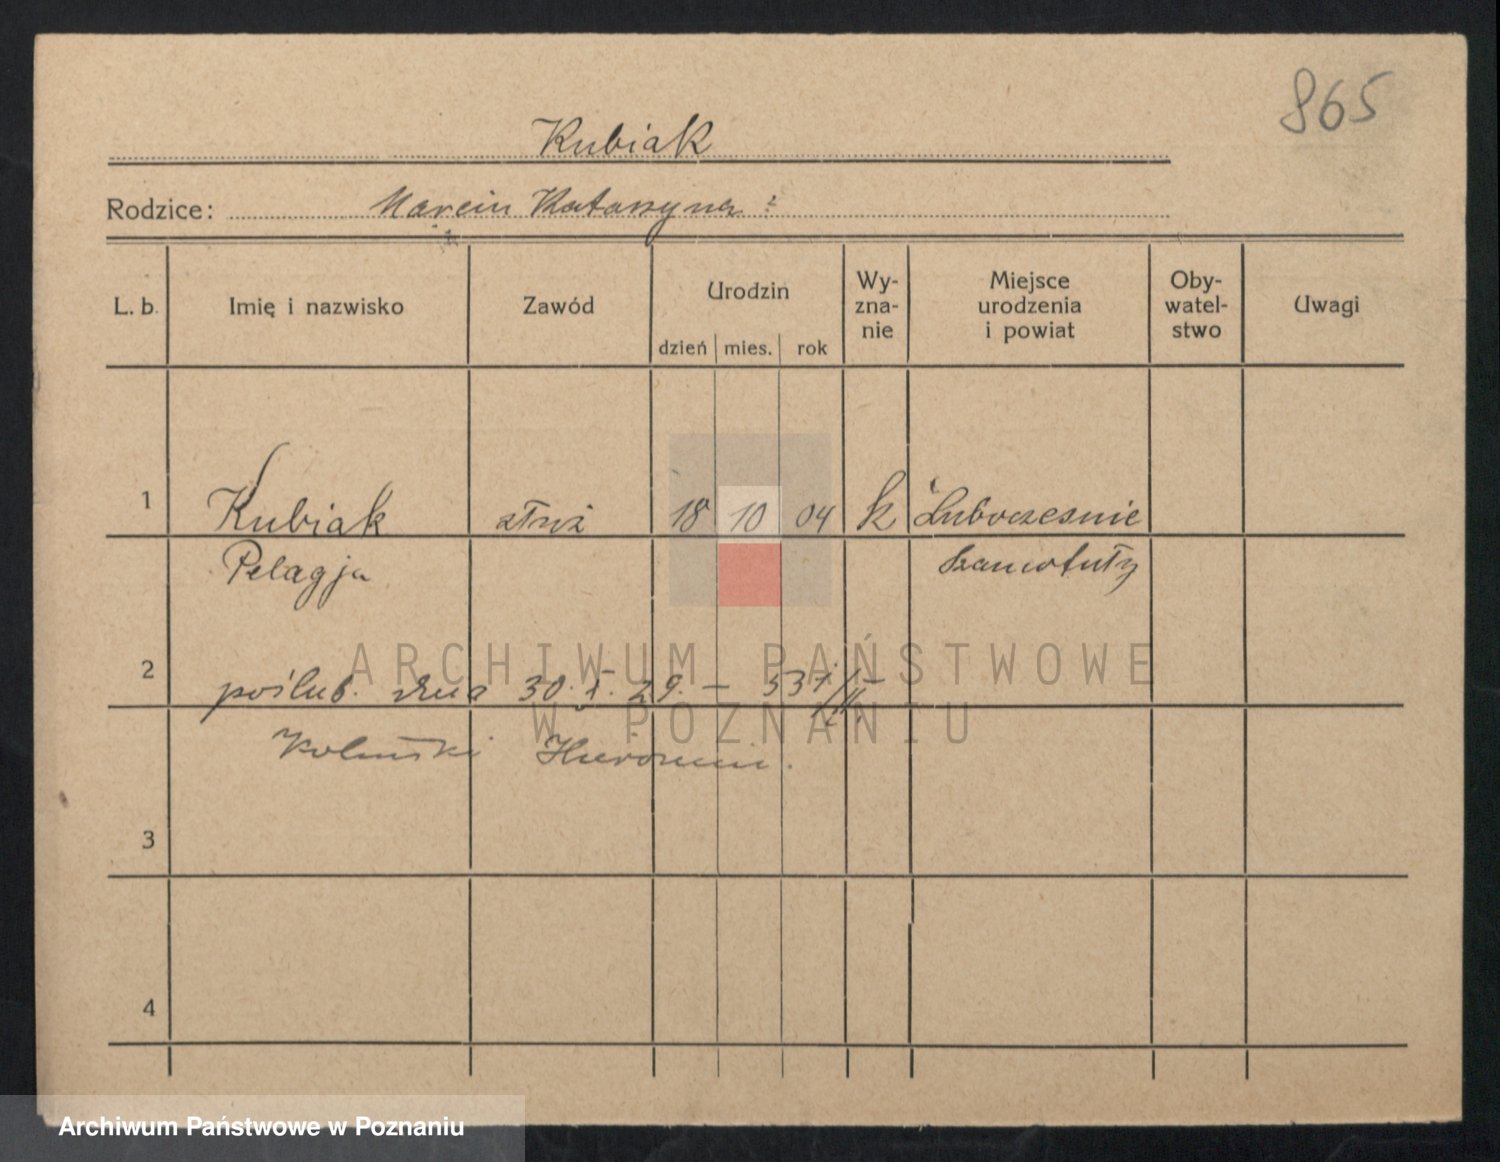 865
Kubiak
Rodzice: Marcin Katarzyna
L. b. Imię i nazwisko Zawód Urodzin dzień mies. rok Wy-zna-nie Miejsce urodzenia i powiat Oby-watel-stwo Uwagi
1 Kubiak służ 18 10 04 k
Pelagja Szamotuły
ARCHIWUM PAŃSTWOWE
2 poślub. dnia 30. X. 29. –
W POZNANIU
Hieronim.
3
4
Archiwum Państwowe w Poznaniu